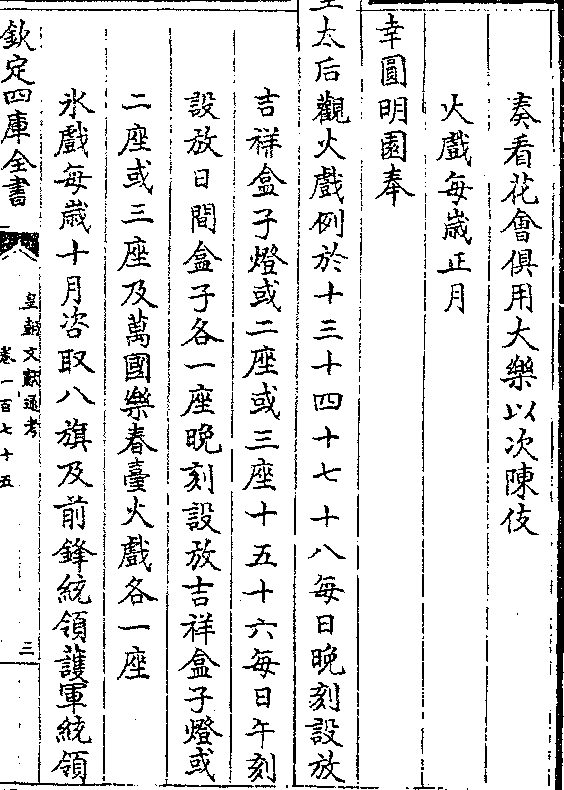 奏看花會俱用大樂以次陳伎
火戲每歲正月
幸圓明園奉
皇太后觀火戲例於十三十四十七十八每日晚刻設放
吉祥盒子燈或二座或三座十五十六每日午刻
設放日間盒子各一座晚刻設放吉祥盒子燈或
二座或三座及萬國樂春臺火戲各一座
氷戲每歲十月咨取八旗及前鋒統領護軍統領
欽定四庫全書
皇朝文獻通考
卷一百七十五
三